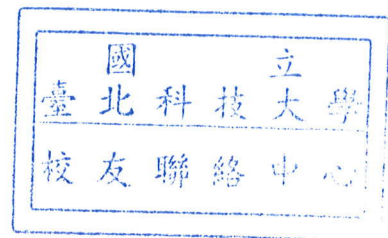 國立
臺北科技大學
校友聯絡中心